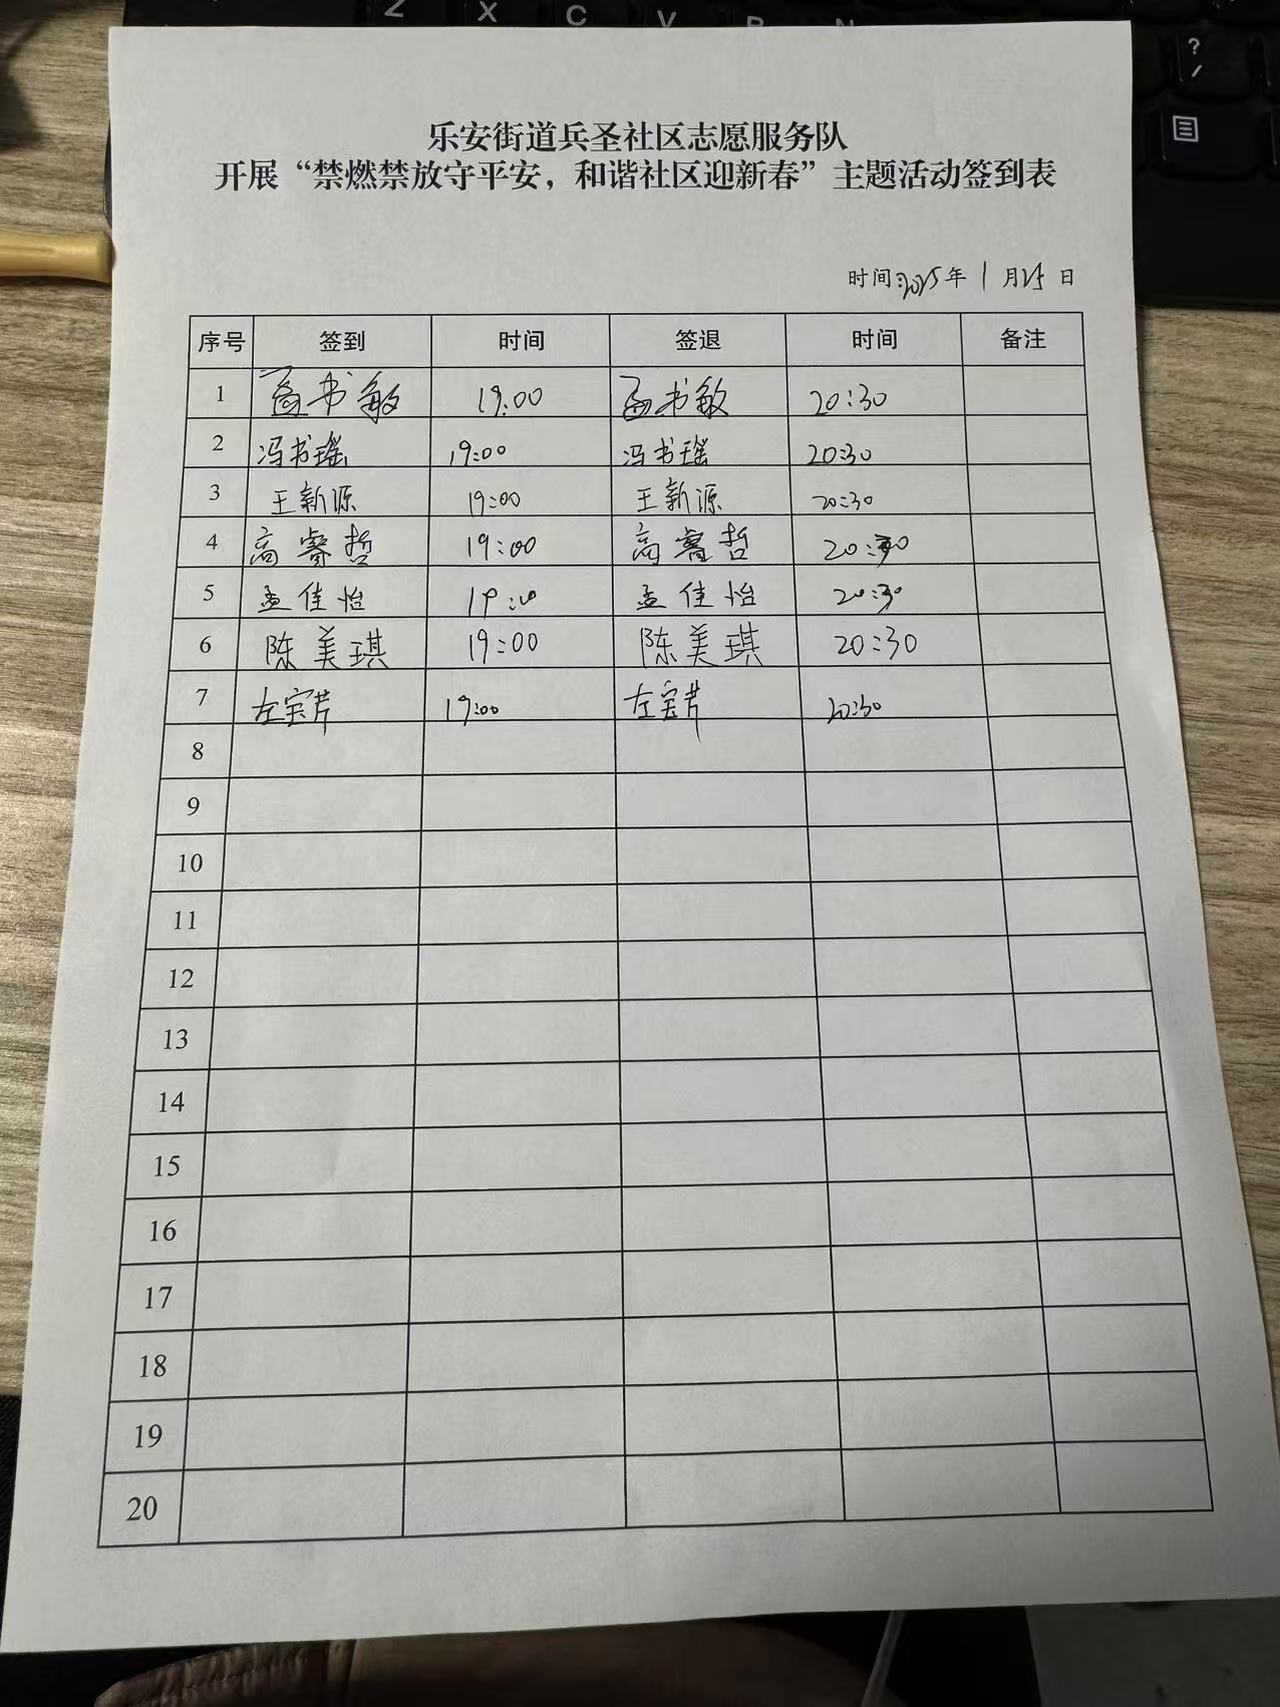 Z X C V B N
?
/
乐安街道兵圣社区志愿服务队
开展“禁燃禁放守平安，和谐社区迎新春”主题活动签到表
时间:2025年1月25日
序号 签到 时间 签退 时间 备注
1 书敏 19:00 书敏 20:30
2 冯书瑶 19:00 冯书瑶 20:30
3 王新源 19:00 王新源 20:30
4 高睿哲 19:00 高睿哲 20:30
5 孟佳怡 19:00 孟佳怡 20:30
6 陈美琪 19:00 陈美琪 20:30
7 左宝芹 19:00 左宝芹 20:30
8
9
10
11
12
13
14
15
16
17
18
19
20